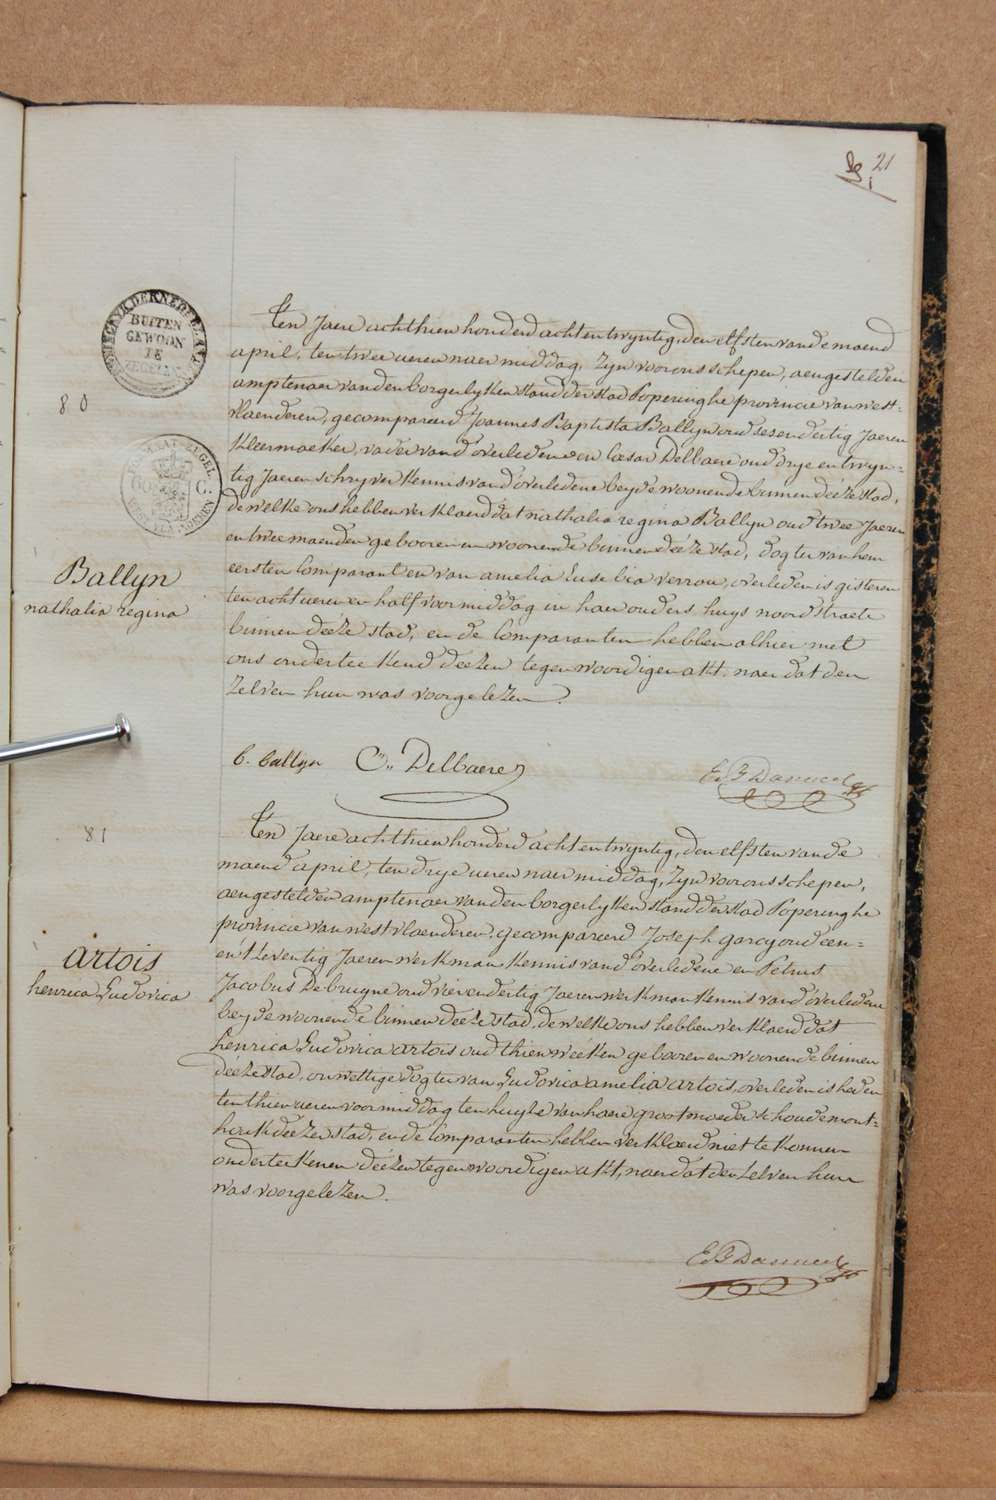 21
KONINGRYK DER NEDERLANDEN
BUITEN
GEWOON
TE
ZEGELEN
80
Ballyn
nathalia regina
Ten Jaere achthien honderd achtentwyntig, den elfsten vande maend
april, ten twee ueren naer middag, Zyn voor ons schepen, aengestelden
amptenaer van den borgerlyken stand der stad Poperinghe provincie van west=
vlaenderen, gecompareerd Joannes Baptista Ballyn oud sesendertig Jaeren
Kleermaeker, vader vand'overledene en Cæsar Delbaere oud drye en twyn=
tig Jaeren schryver kennis vand'overledene beyde woonende binnen deéze stad,
de welke ons hebben verklaerd dat nathalia regina Ballyn oud twee Jaeren
en twee maenden gebooren en woonende binnen deeze stad, dogter van hem
eersten Comparant en van amelia Eusebia verrou, overleden is gisteren
ten acht ueren en half voormiddag in haer ouders huys noordstraete
binnen deeze stad, en de Comparanten hebben alhier met
ons onderteekend deezen tegenwoordigen akt, naer dat den
zelven hun was voorgelezen.
b. ballyn C., Delbaere
81
artois
henrica Ludovica
Ten Jaere achthien honderd achtentwyntig, den elfsten vande
maend april, ten drye ueren naer middag, Zyn voor ons schepen,
aengestelden amptenaer van den borgerlyken stand der stad Poperinghe
provincie van westvlaenderen, gecompareerd Joseph garcy oud een=
en tzeventig Jaeren werkman kennis vand'overledene en Petrus
Jacobus Debrugne oud vierendertig Jaeren werkman kennis vand'overledene
beyde woonende binnen deeze stad, de welke ons hebben verklaerd dat
henrica Ludovica artois oud thien weeken gebooren en woonende binnen
deéze stad, onwettige dogter van Ludovica amelia artois, overleden is heden
ten thien ueren voormiddag ten huyze van haere grootmoeder schoudemont=
houk deeze stad, en de Comparanten hebben verklaerd niet te konnen
onderteekenen deézen tegenwoordigen akt, naer dat den zelven hun
was voorgelezen.